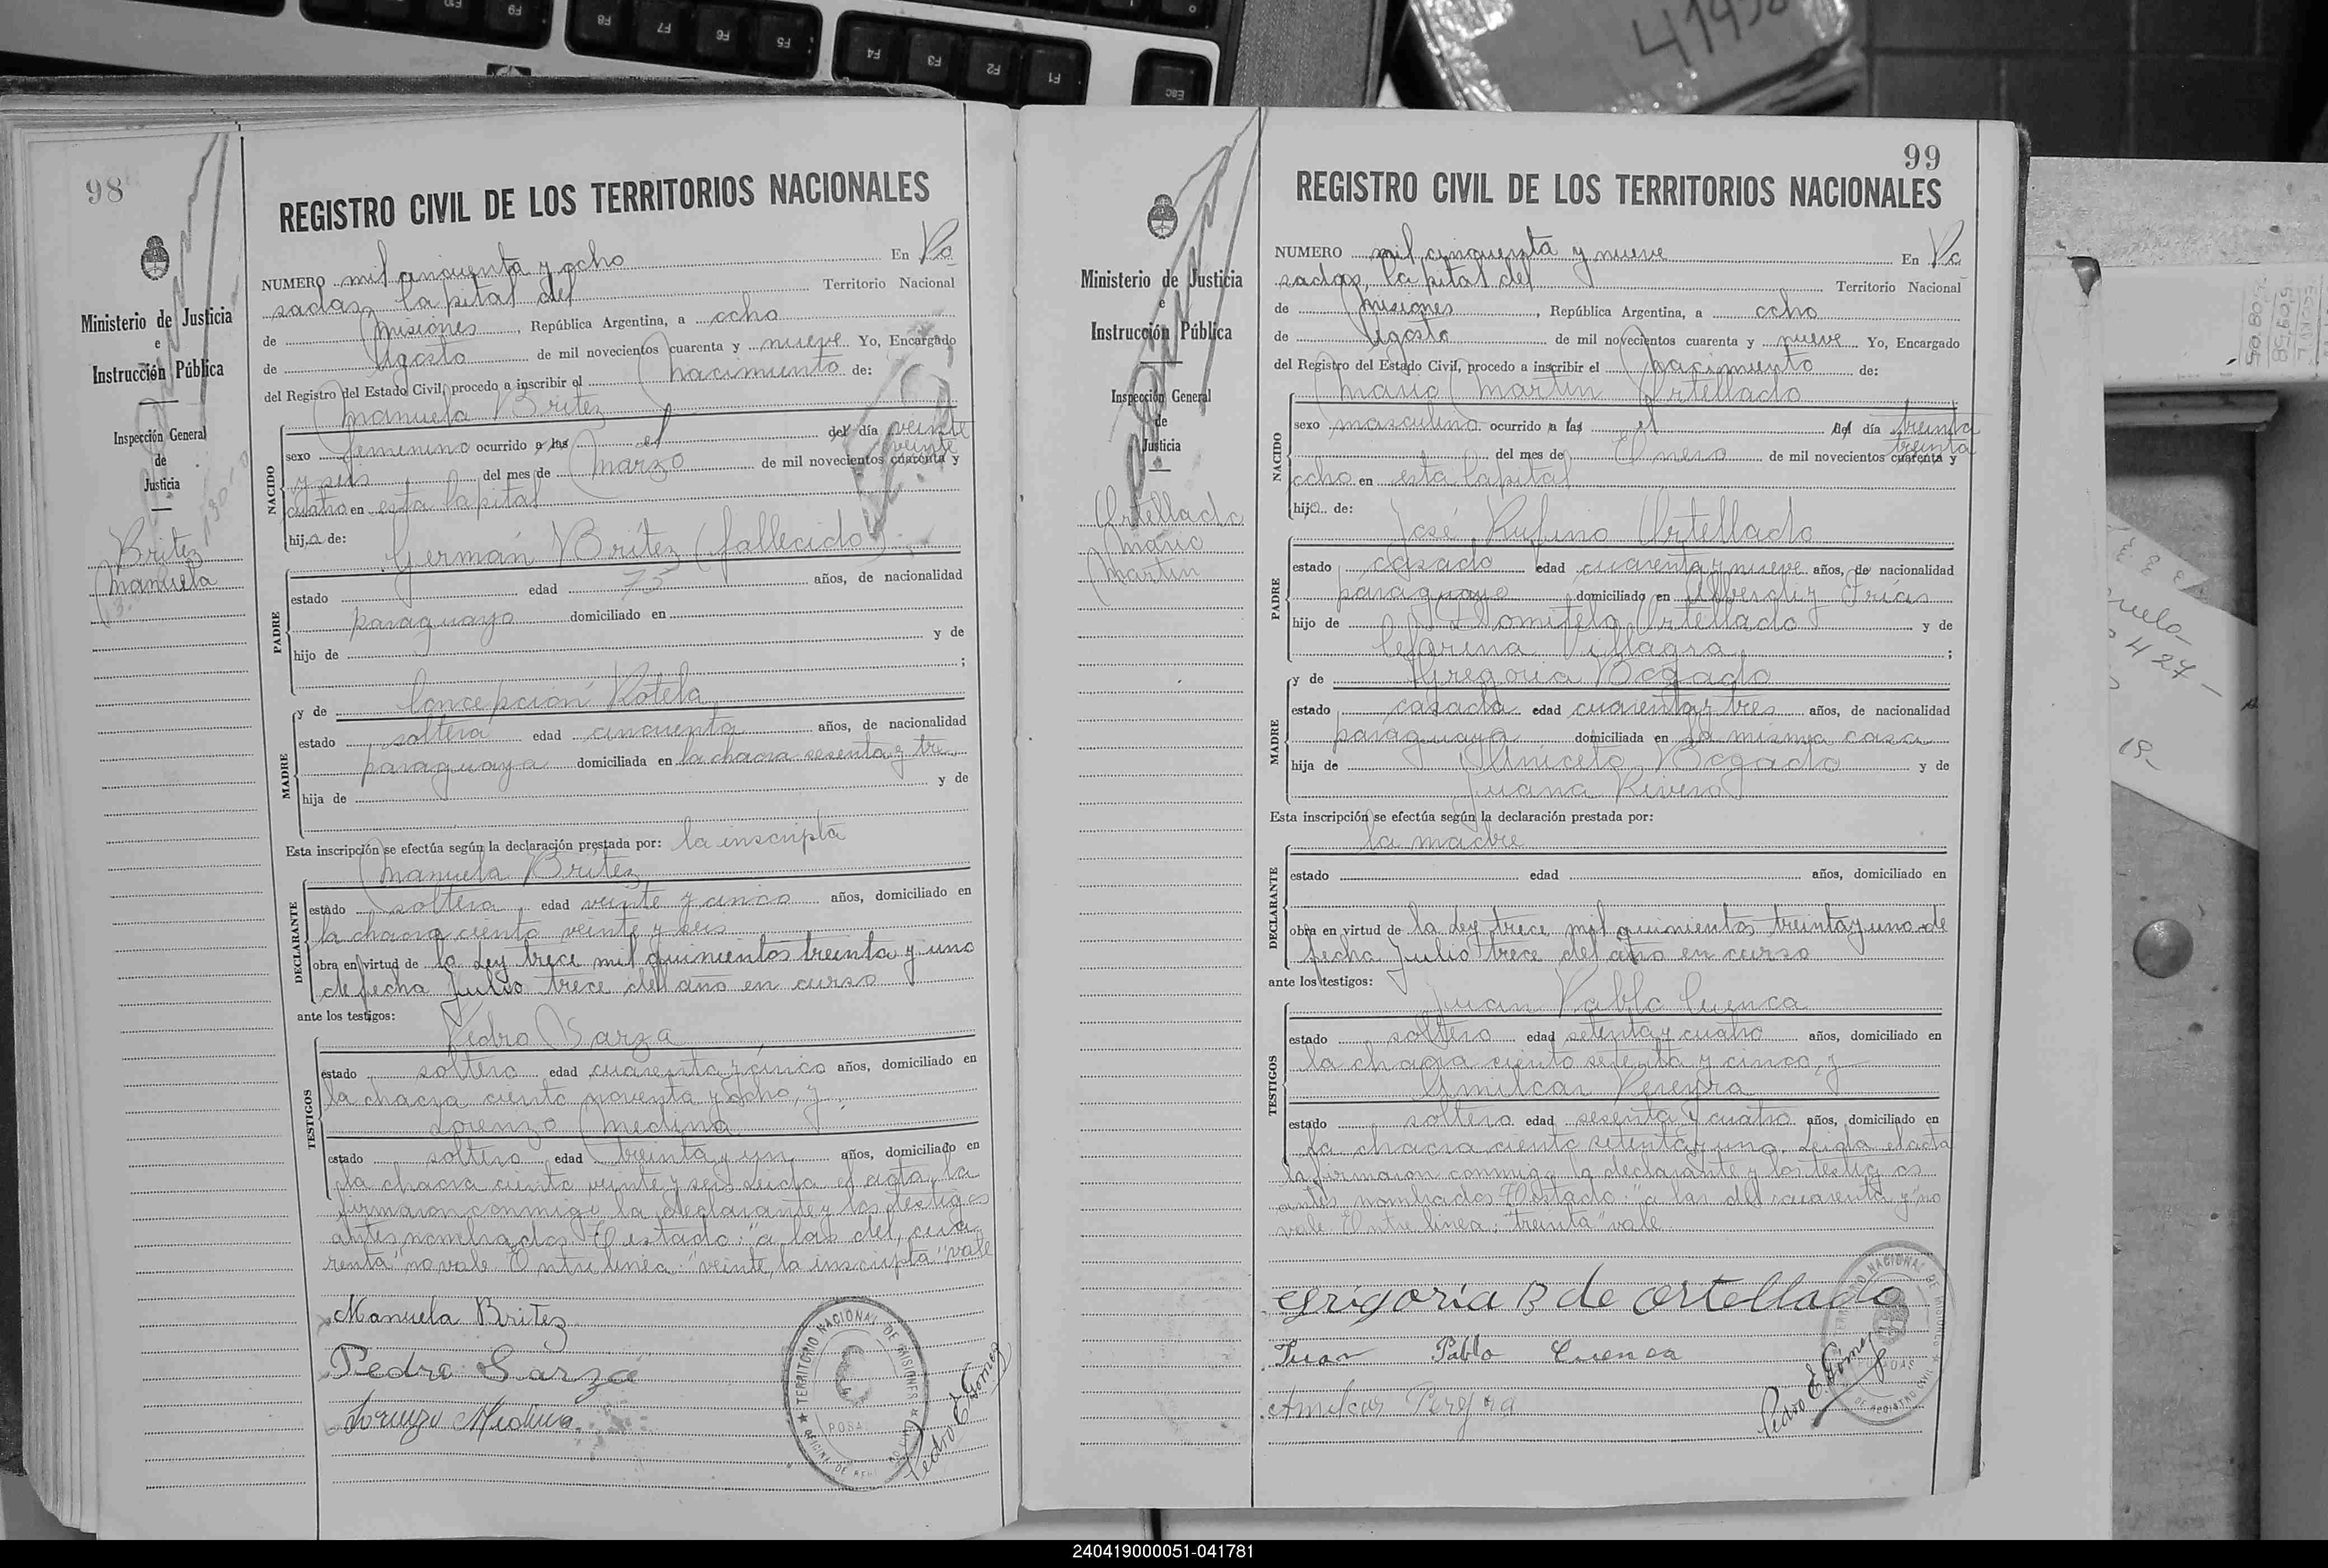 98
Ministerio de Justicia
e
Instrucción Pública
Inspección General
de
Justicia
Britez
Manuela
REGISTRO CIVIL DE LOS TERRITORIOS NACIONALES
NUMERO mil cincuenta y ocho En Po
sadas, Capital del Territorio Nacional
de Misiones, República Argentina, a ocho
de Agosto de mil novecientos cuarenta y nueve Yo, Encargado
del Registro del Estado Civil, procedo a inscribir el nacimiento de:
Manuela Britez
NACIDO
sexo femenino ocurrido a las el del día veinte
veinte
y seis del mes de Marzo de mil novecientos cuarenta y
cuatro en esta Capital
hija de:
Germán Britez (fallecido)
PADRE
estado edad 75 años, de nacionalidad
paraguayo domiciliado en
hijo de y de
;
y de Concepción Rotela
MADRE
estado soltera edad cincuenta años, de nacionalidad
paraguaya domiciliada en la chacra sesenta y tr
hija de y de
Esta inscripción se efectúa según la declaración prestada por: la inscripta
Manuela Britez
DECLARANTE
estado soltera edad veinte y cinco años, domiciliado en
la chacra ciento veinte y seis
obra en virtud de la Ley trece mil quinientos treinta y uno
de fecha Julio trece del año en curso
ante los testigos:
Pedro Sarza
TESTIGOS
estado soltero edad cuarenta y cinco años, domiciliado en
la chacra ciento noventa y ocho, y
Lorenzo Medina
estado soltero edad treinta y un años, domiciliado en
la chacra ciento veinte y seis Leida el acta, la
firmaron conmigo la declarante y los testigos
antes nombrados. Testado: "a las del, cua
renta" no vale. Entre linea: "veinte, la inscripta" vale
Manuela Britez
Pedro Sarza
Lorenzo Medina
TERRITORIO NACIONAL DE MISIONES
POSA
Pedro E. Gomez
99
Ministerio de Justicia
e
Instrucción Pública
Inspección General
de
Justicia
Ortellado
Mario
Martin
REGISTRO CIVIL DE LOS TERRITORIOS NACIONALES
NUMERO mil cincuenta y nueve En Po
sadas, Capital del Territorio Nacional
de Misiones, República Argentina, a ocho
de Agosto de mil novecientos cuarenta y nueve Yo, Encargado
del Registro del Estado Civil, procedo a inscribir el nacimiento de:
Mario Martin Ortellado
NACIDO
sexo masculino ocurrido a las el del día treinta
treinta
del mes de Enero de mil novecientos cuarenta y
ocho en esta Capital
hijo de:
José Rufino Ortellado
PADRE
estado casado edad cuarenta y nueve años, de nacionalidad
paraguayo domiciliado en Alberdi y Frías
hijo de Ortellado y de
Ceferina Villagra ;
y de Gregoria Bogado
MADRE
estado casada edad cuarenta y tres años, de nacionalidad
paraguaya domiciliada en la misma casa
hija de Aniceto Bogado y de
Juana Rivero
Esta inscripción se efectúa según la declaración prestada por:
la madre
DECLARANTE
estado edad años, domiciliado en
obra en virtud de la Ley trece mil quinientos treinta y uno de
fecha Julio trece del año en curso
ante los testigos:
Juan Pablo Cuenca
TESTIGOS
estado soltero edad setenta y cuatro años, domiciliado en
la chacra ciento setenta y cinco, y
Amilcar Pereyra
estado soltero edad sesenta y cuatro años, domiciliado en
la chacra ciento setenta y uno. Leida el acta
la firmaron conmigo la declarante y los testigos
antes nombrados. Testado: "a las del cuarenta y" no
vale. Entre linea: "treinta" vale
Grigoria B de Ortellado
Juan Pablo Cuenca
Amilcar Pereyra
Pedro E. Gomez
240419000051-041781